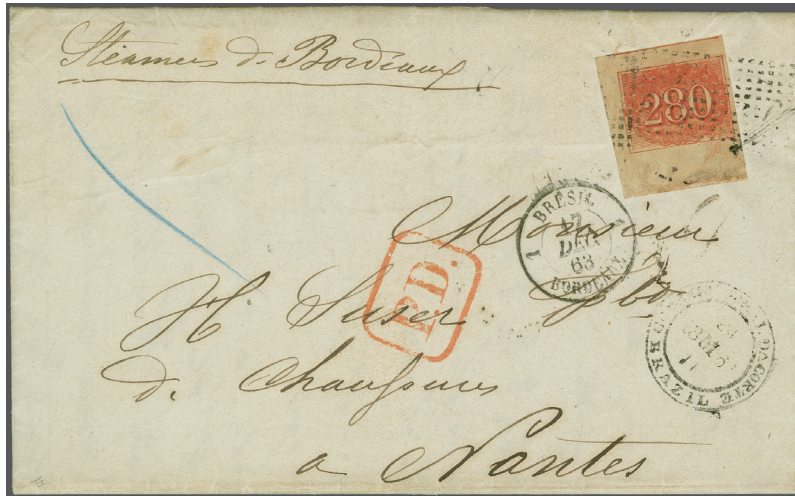 Steamers de Bordeaux
280
BRÉSIL
1 17 DEC 63
BORDEAUX
P.D.
Monsieur
H. Suser
d. Chaussures
a Nantes
DA CORTE
BRAZIL